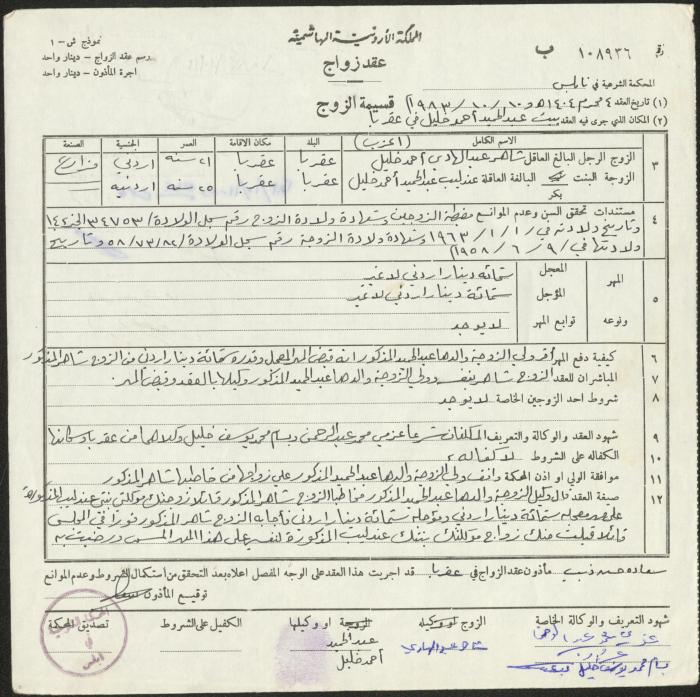 نموذج ش - ١
رسم عقد الزواج - دينار واحد
اجرة المأذون - دينار واحد
المملكة الأردنية الهاشمية
عقد زواج
رقم ١٠٨٩٣٦ ب
المحكمة الشرعية في نابلس
(١) تاريخ العقد ٤ محرم ١٤٠٤هـ و ١٠/١٠/١٩٨٣م قسيمة الزوج
(٢) المكان الذي جرى فيه العقد بيت عبدالحميد أحمد خليل في عقربا
الاسم الكامل (اعزب) البلد مكان الاقامة العمر الجنسية الصنعة
٣ الزوج الرجل البالغ العاقل شاهر عبدالهادي أحمد خليل عقربا عقربا ٢١ سنة اردني مزارع
الزوجة البنت بكر البالغة العاقلة عندليب عبدالحميد أحمد خليل عقربا عقربا ٢٥ سنة اردنية
٤ مستندات تحقق السن وعدم الموانع مضبطة الزوجين وشهادة ولادة الزوج رقم سجل الولادة/٣٤٧٥٣
وتاريخ ولادته في ١/١/١٩٦٣م وشهادة ولادة الزوجة رقم سجل الولادة/٥٨/٧٣/٨٢ وتاريخ
ولادتها في ٩/٦/١٩٥٨م
٥ المهر ونوعه
المعجل ستمائة دينار اردني لا غير
المؤجل ستمائة دينار اردني لا غير
توابع المهر لا يوجد
٦ كيفية دفع المهر أقر ولي الزوجة والدها عبدالحميد المذكور انه قبض المهر المعجل وقدره ستمائة دينار اردني من الزوج شاهر المذكور
٧ المباشران للعقد الزوج شاهر بنفسه وولي الزوجة والدها عبدالحميد المذكور وكيلها بالعقد وقبض المهر
٨ شروط احد الزوجين الخاصة لا يوجد
٩ شهود العقد والوكالة والتعريف المكلفان شرعا عزمي محمد عبدالرحمن وبسام محمد يوسف خليل وكلاهما من عقربا وسكانها
١٠ الكفالة على الشروط لا كفالة
١١ موافقة الولي او اذن المحكمة وافق ولي الزوجة والدها عبدالحميد المذكور على زواجها من خاطبها شاهر المذكور
١٢ صفة العقد قال وكيل الزوجة والدها عبدالحميد المذكور مخاطبا الزوج شاهر المذكور قائلا زوجتك موكلتي بنتي عندليب المذكورة
على مهر معجله ستمائة دينار اردني ومؤجله ستمائة دينار اردني فأجابه الزوج شاهر المذكور فورا في المجلس
قائلا قبلت منك زواج موكلتك بنتك عندليب المذكورة لنفسي على هذا المهر المسمى ورضيت به
مأذون عقد الزواج في عقربا قد اجريت هذا العقد على الوجه المفصل اعلاه بعد التحقق من استكمال الشروط وعدم الموانع
توقيع المأذون
شهود التعريف والوكالة الخاصة
الزوج او وكيله
الزوجة او وكيلها
الكفيل على الشروط
تصديق المحكمة
شاهر عبدالهادي
عبدالحميد
أحمد خليل
بسام محمد يوسف خليل